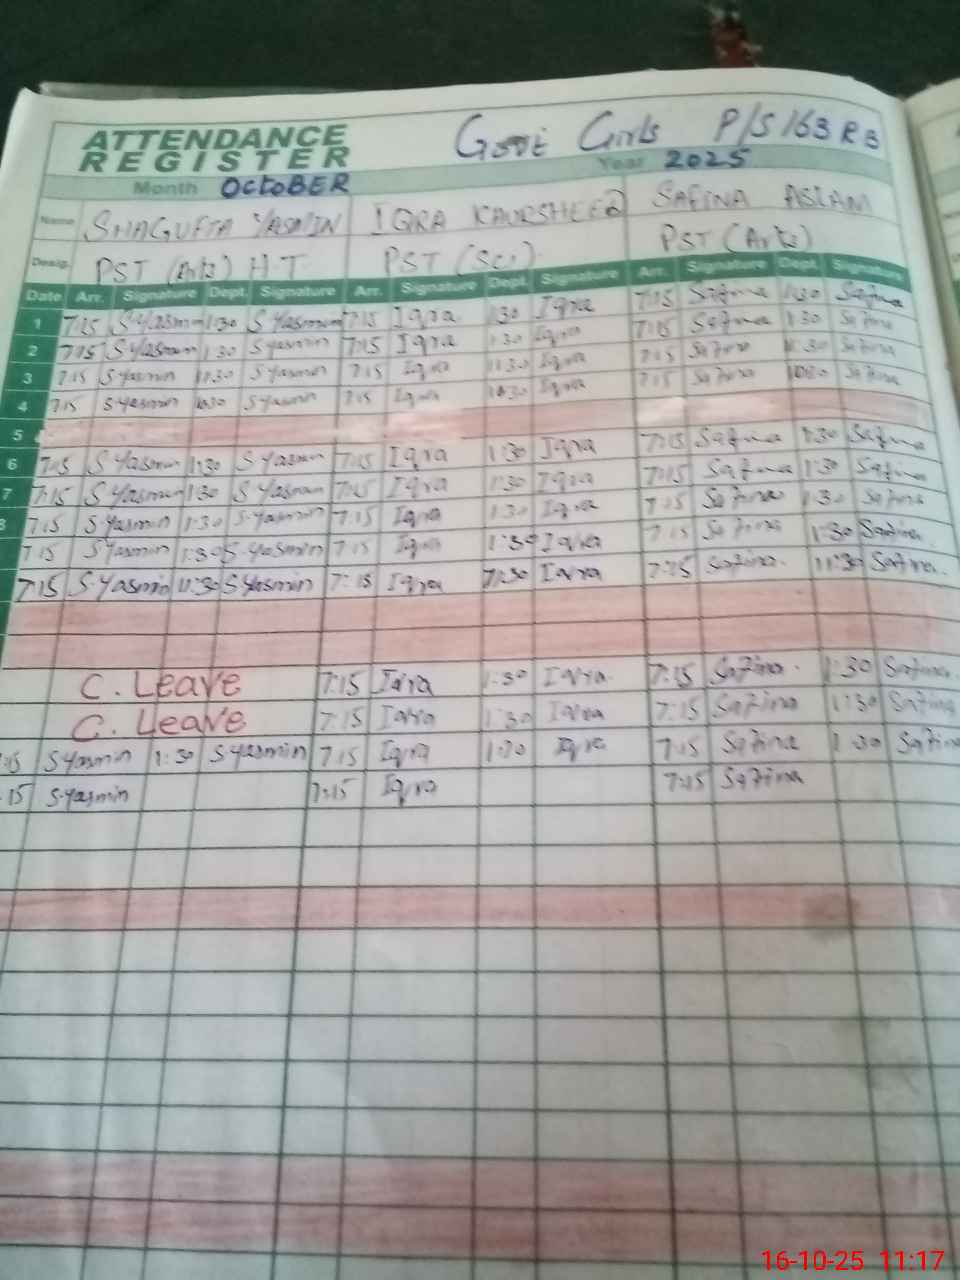 ATTENDANCE REGISTER
Govt Girls P/S 163 RB
Month OCTOBER Year 2025
Name SHAGUFTA YASMIN IQRA KHURSHEED SAFINA ASLAM
Desig. PST (Arts) H.T. PST (Sci) PST (Arts)
Date Arr. Signature Dept. Signature Arr. Signature Dept. Signature Arr. Signature Dept. Signature
1 7:15 S.Yasmin 1:30 S.Yasmin 7:15 Iqra 1:30 Iqra 7:15 Safina 1:30 Safina
2 7:15 S.Yasmin 1:30 S.Yasmin 7:15 Iqra 1:30 Iqra 7:15 Safina 1:30 Safina
3 7:15 S.Yasmin 11:30 S.Yasmin 7:15 Iqra 11:30 Iqra 7:15 Safina 11:30 Safina
4 7:15 S.Yasmin S.Yasmin 7:15 Iqra Iqra 7:15 Safina Safina
5
6 7:15 S.Yasmin 1:30 S.Yasmin 7:15 Iqra 1:30 Iqra 7:15 Safina 1:30 Safina
7 7:15 S.Yasmin 1:30 S.Yasmin 7:15 Iqra 1:30 Iqra 7:15 Safina 1:30 Safina
8 7:15 S.Yasmin 1:30 S.Yasmin 7:15 Iqra 1:30 Iqra 7:15 Safina 1:30 Safina
7:15 S.Yasmin 1:30 S.Yasmin 7:15 Iqra 1:30 Iqra 7:15 Safina 1:30 Safina.
7:15 S.Yasmin 11:30 S.Yasmin 7:15 Iqra 11:30 Iqra 7:15 Safina. 11:30 Safina.
C. Leave 7:15 Iqra 1:30 Iqra. 7:15 Safina. 1:30 Safina.
C. Leave 7:15 Iqra 1:30 Iqra 7:15 Safina 1:30 Safina
:15 S.Yasmin 1:30 S.Yasmin 7:15 Iqra 1:30 Iqra 7:15 Safina 1:30 Safina
:15 S.Yasmin 7:15 Iqra 7:15 Safina
16-10-25 11:17